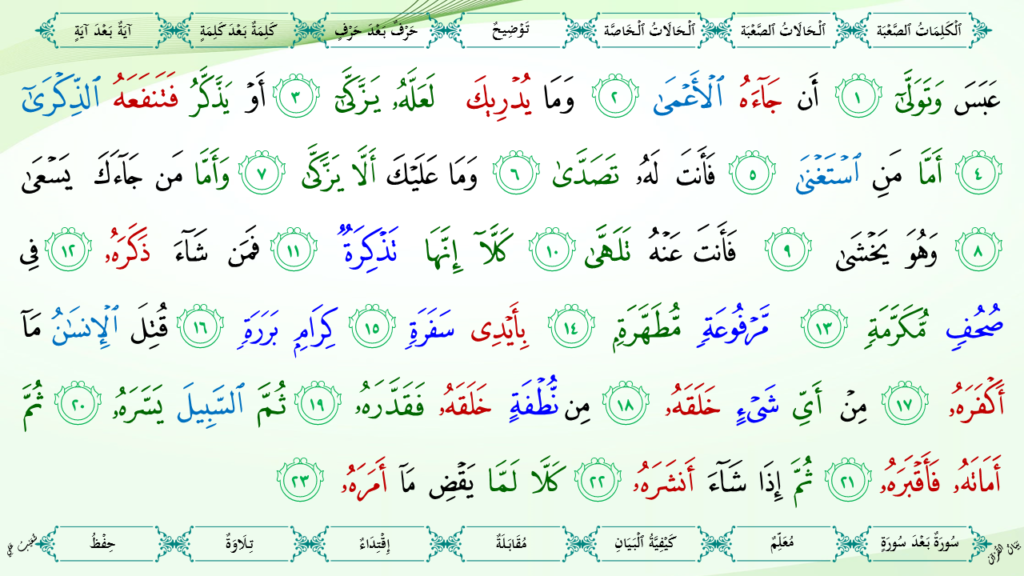 اَلْكَلِمَاتُ الصَّعْبَة اَلْحَالَاتُ الصَّعْبَة اَلْحَالَاتُ الْخَاصَّة تَوْضِيحٌ حَرْفٌ بَعْدَ حَرْفٍ كَلِمَةٌ بَعْدَ كَلِمَةٍ آيَةٌ بَعْدَ آيَةٍ
عَبَسَ وَتَوَلَّىٰٓ ١ أَن جَآءَهُ ٱلۡأَعۡمَىٰ ٢ وَمَا يُدۡرِيكَ لَعَلَّهُۥ يَزَّكَّىٰٓ ٣ أَوۡ يَذَّكَّرُ فَتَنفَعَهُ ٱلذِّكۡرَىٰٓ
٤ أَمَّا مَنِ ٱسۡتَغۡنَىٰ ٥ فَأَنتَ لَهُۥ تَصَدَّىٰ ٦ وَمَا عَلَيۡكَ أَلَّا يَزَّكَّىٰ ٧ وَأَمَّا مَن جَآءَكَ يَسۡعَىٰ
٨ وَهُوَ يَخۡشَىٰ ٩ فَأَنتَ عَنۡهُ تَلَهَّىٰ ١٠ كَلَّآ إِنَّهَا تَذۡكِرَةٌ ١١ فَمَن شَآءَ ذَكَرَهُۥ ١٢ فِي
صُحُفٍ مُّكَرَّمَةٍ ١٣ مَّرۡفُوعَةٍ مُّطَهَّرَةٍۭ ١٤ بِأَيۡدِي سَفَرَةٍ ١٥ كِرَامِۭ بَرَرَةٍ ١٦ قُتِلَ ٱلۡإِنسَٰنُ مَآ
أَكۡفَرَهُۥ ١٧ مِنۡ أَيِّ شَيۡءٍ خَلَقَهُۥ ١٨ مِن نُّطۡفَةٍ خَلَقَهُۥ فَقَدَّرَهُۥ ١٩ ثُمَّ ٱلسَّبِيلَ يَسَّرَهُۥ ٢٠ ثُمَّ
أَمَاتَهُۥ فَأَقۡبَرَهُۥ ٢١ ثُمَّ إِذَا شَآءَ أَنشَرَهُۥ ٢٢ كَلَّا لَمَّا يَقۡضِ مَآ أَمَرَهُۥ ٢٣
سُورَةٌ بَعْدَ سُورَةٍ مُعَلِّمٌ كَيْفِيَّةُ الْبَيَانِ مُقَابَلَةٌ إِقْتِدَاءٌ تِلَاوَةٌ حِفْظُ
بَيَانُ الْقُرْآنِ